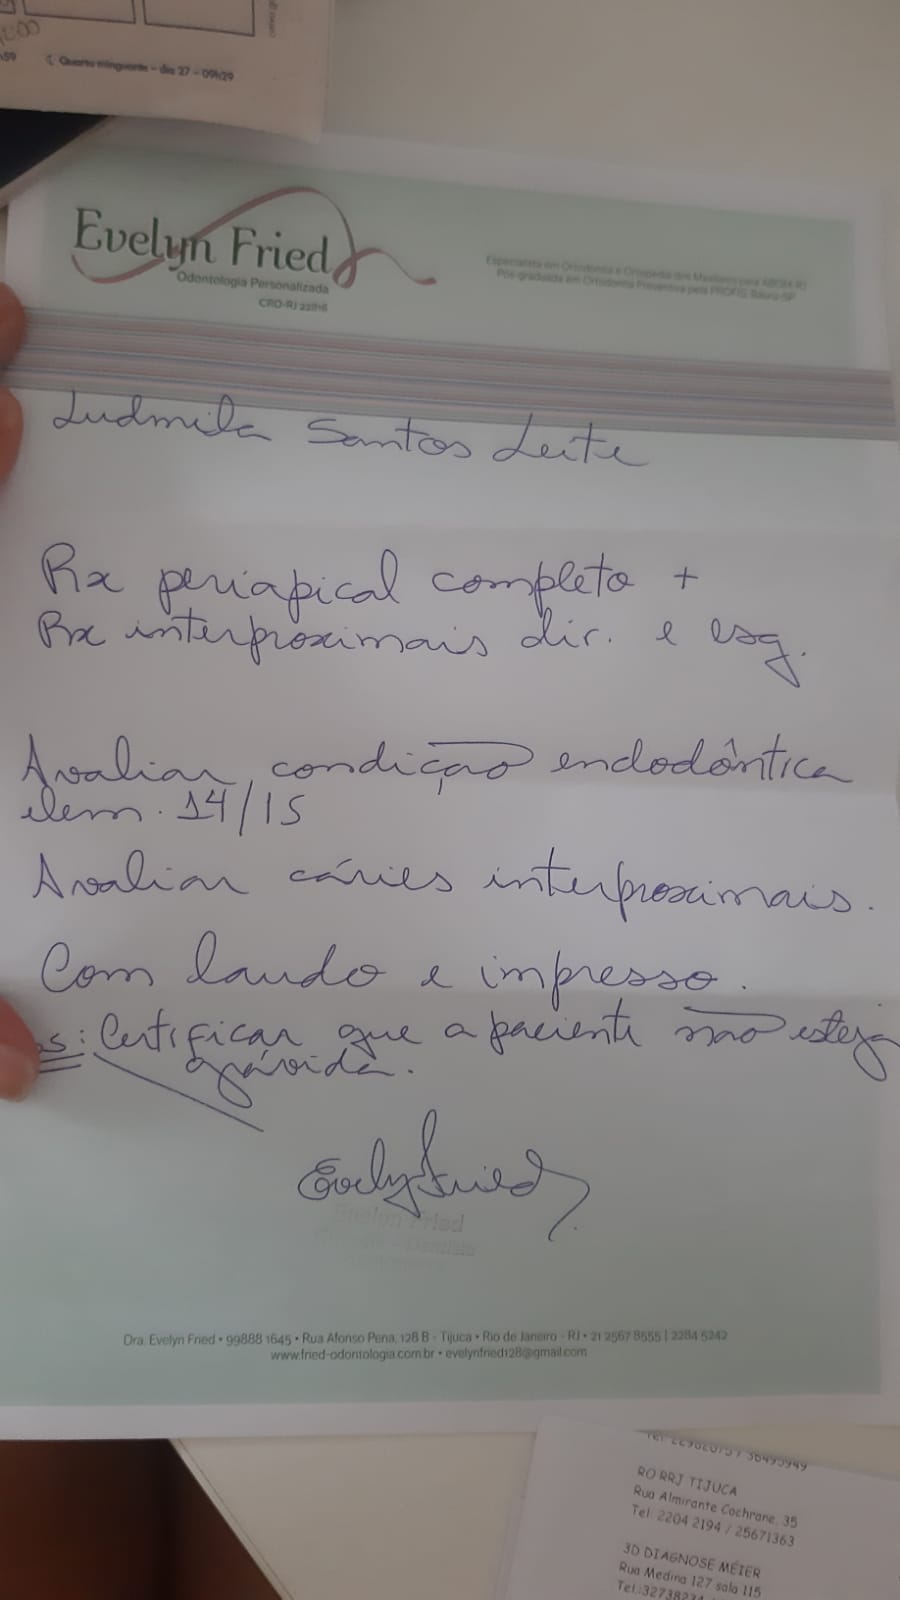 59 ☾ Quarto minguante – dia 27 – 09h29
Evelyn Fried
Odontologia Personalizada
CRO-RJ
Especialista em Ortodontia e Ortopedia dos Maxilares pela
Pós-graduada em Ortodontia Preventiva pela PROFIS, Bauru-SP
Ludmila Santos Leite
Rx periapical completo +
Rx interproximais dir. e esq.
Avaliar condição endodôntica
elem. 14/15
Avaliar cáries interproximais.
Com laudo e impresso.
s: Certificar que a paciente não esteja
grávida.
Evelyn Fried
Evelyn Fried
Dra. Evelyn Fried • 99888 1645 • Rua Afonso Pena, 128 B - Tijuca • Rio de Janeiro - RJ • 21 2567 8555 | 2284 5242
www.fried-odontologia.com.br • evelynfried128@gmail.com
RO RRJ TIJUCA
Rua Almirante Cochrane, 35
Tel: 2204 2194 / 25671363
3D DIAGNOSE MÉIER
Rua Medina 127 sala 115